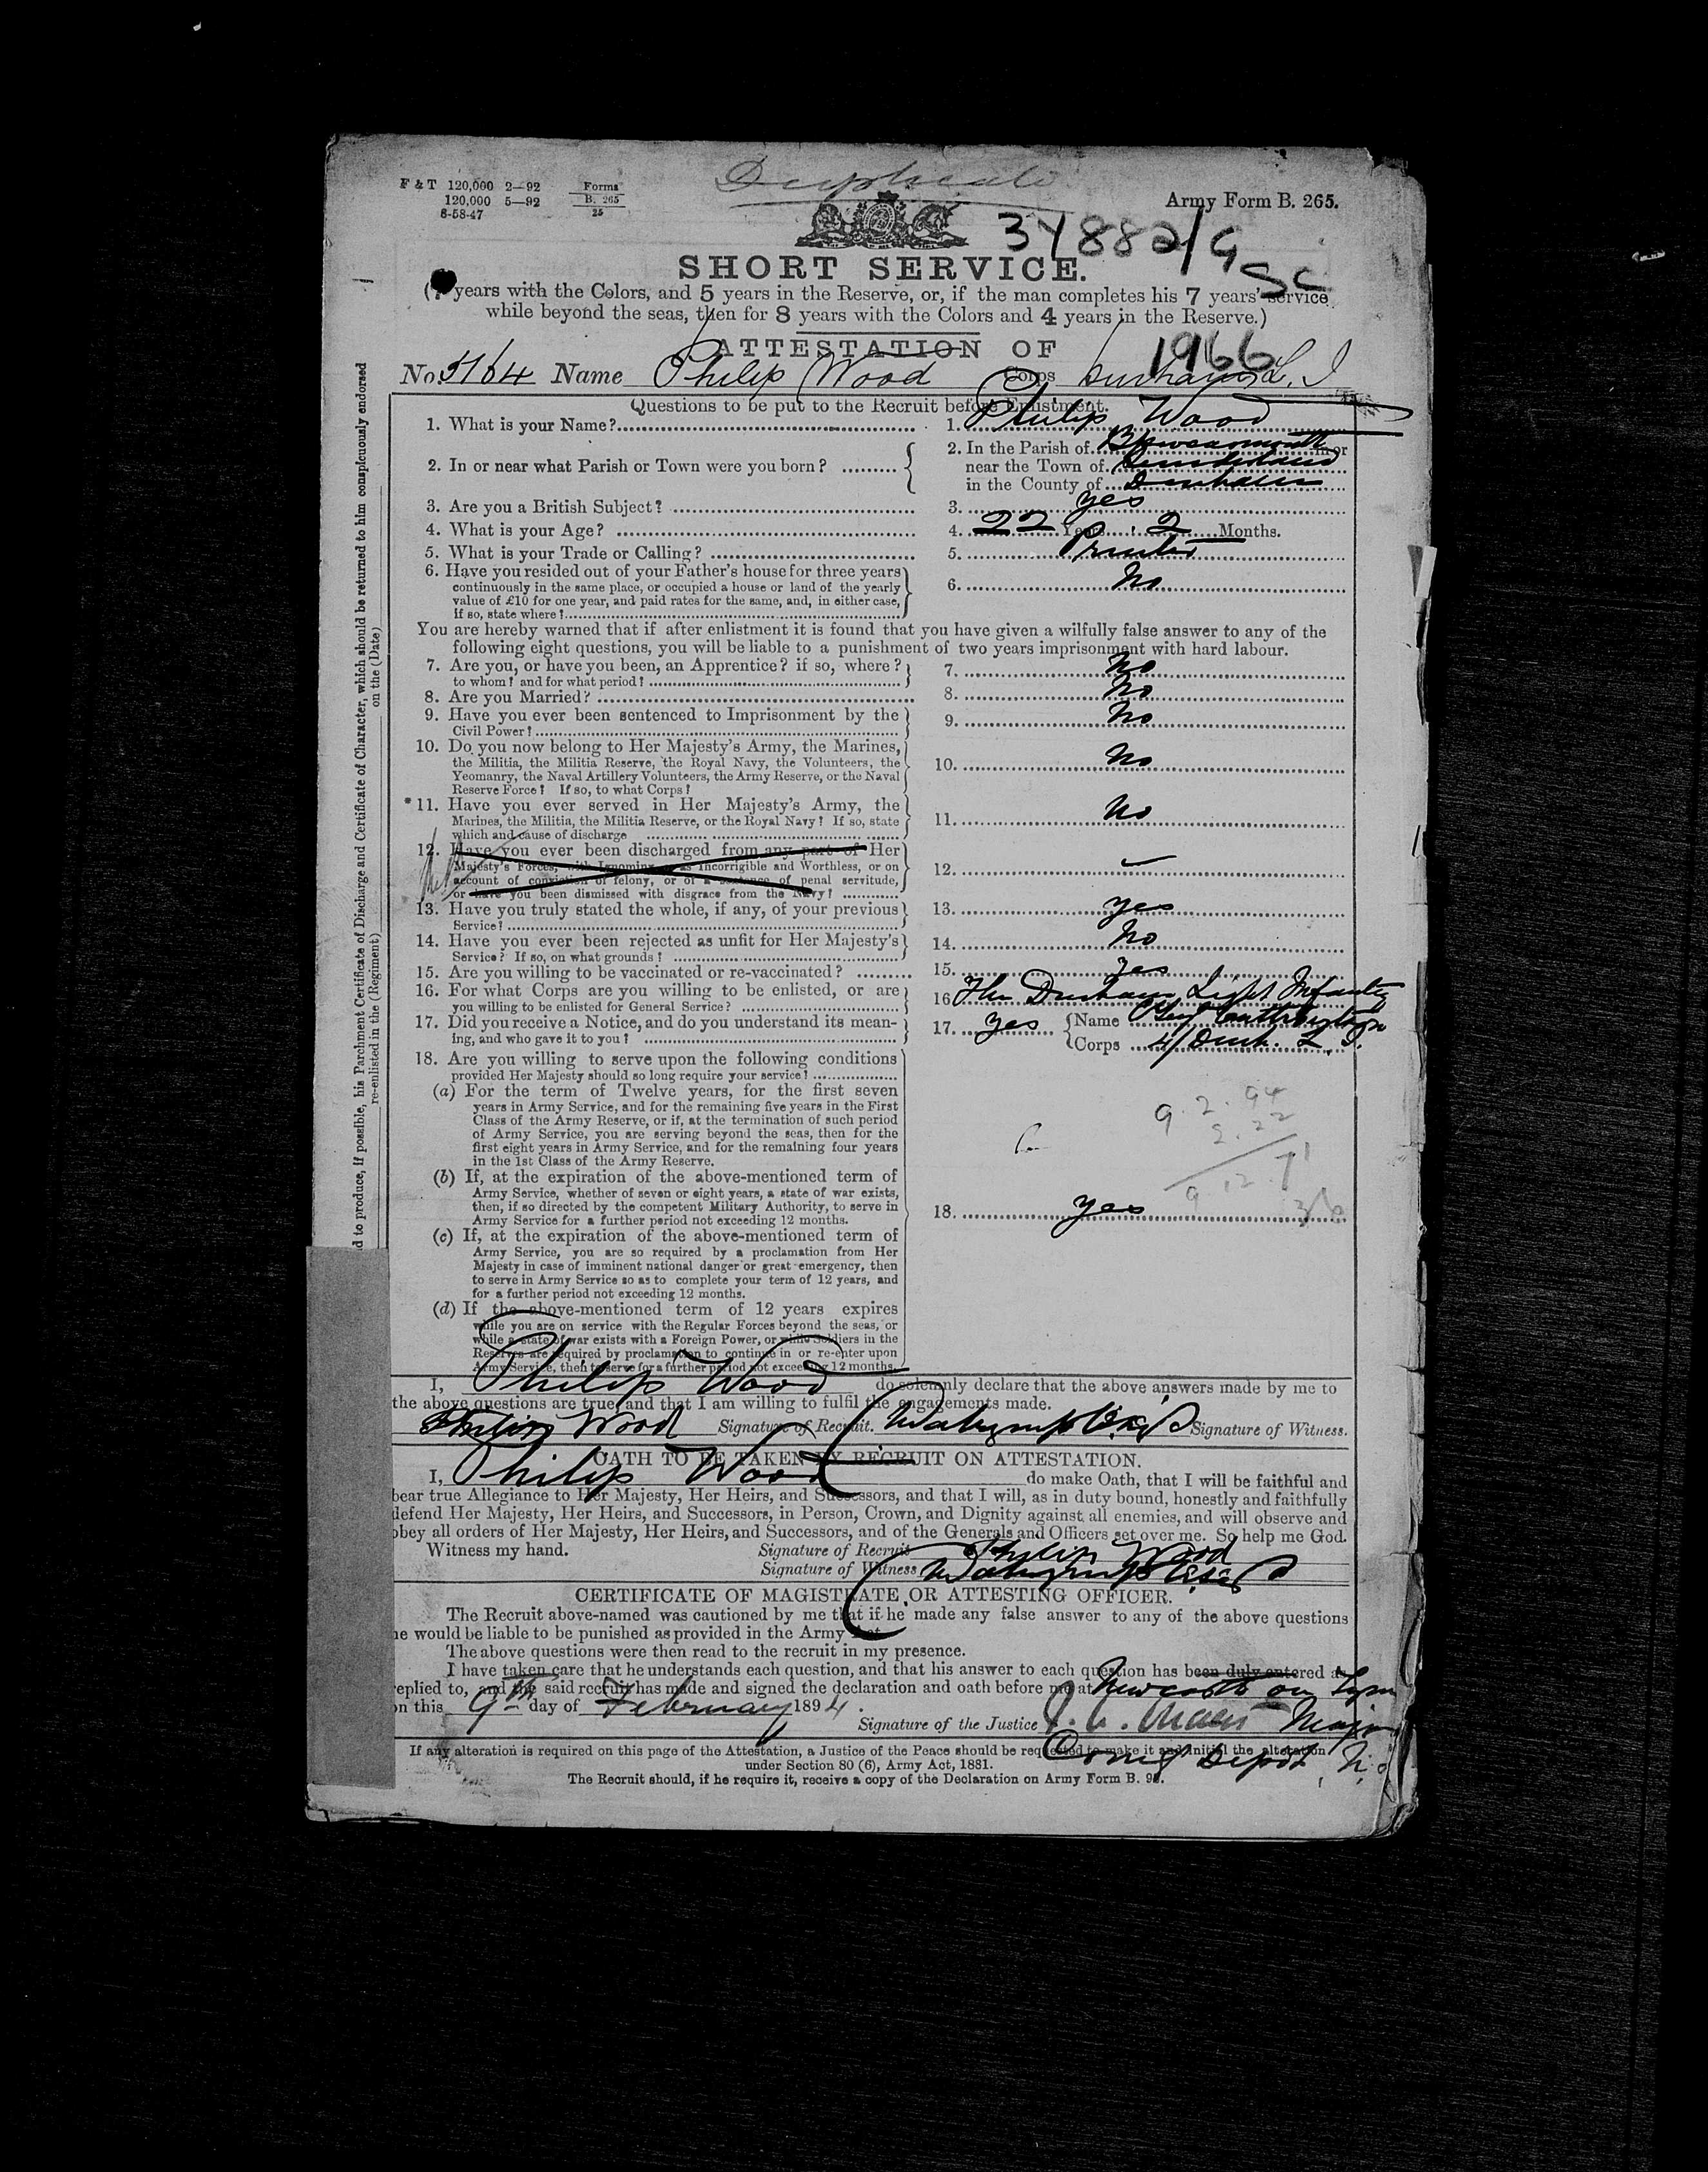 F & T 120,000 2—92
120,000 5—92
8-58-47
Forms
B. 265
25
Duplicate
Army Form B. 265.
SHORT SERVICE.
SC
years with the Colors, and 5 years in the Reserve, or, if the man completes his 7 years' service
while beyond the seas, then for 8 years with the Colors and 4 years in the Reserve.)
ATTESTATION OF
1966
No. 5164 Name Philip Wood Corps Durham L. I
Questions to be put to the Recruit before Enlistment.
1. What is your Name? 1. Philip Wood
2. In or near what Parish or Town were you born? 2. In the Parish of Bpwearmouth in or
near the Town of Sunderland
in the County of Durham
3. Are you a British Subject? 3. yes
4. What is your Age? 4. 22 Years 2 Months.
5. What is your Trade or Calling? 5. Printer
6. Have you resided out of your Father's house for three years
continuously in the same place, or occupied a house or land of the yearly
value of £10 for one year, and paid rates for the same, and, in either case,
if so, state where? 6. No
You are hereby warned that if after enlistment it is found that you have given a wilfully false answer to any of the
following eight questions, you will be liable to a punishment of two years imprisonment with hard labour.
7. Are you, or have you been, an Apprentice? if so, where?
to whom? and for what period? 7. No
8. Are you Married? 8. No
9. Have you ever been sentenced to Imprisonment by the
Civil Power? 9. No
10. Do you now belong to Her Majesty's Army, the Marines,
the Militia, the Militia Reserve, the Royal Navy, the Volunteers, the
Yeomanry, the Naval Artillery Volunteers, the Army Reserve, or the Naval
Reserve Force? If so, to what Corps? 10. No
*11. Have you ever served in Her Majesty's Army, the
Marines, the Militia, the Militia Reserve, or the Royal Navy? If so, state
which and cause of discharge 11. No
12. Have you ever been discharged from any part of Her
Majesty's Forces, with Ignominy, as Incorrigible and Worthless, or on
account of conviction of felony, or of a sentence of penal servitude,
or have you been dismissed with disgrace from the Navy? 12.
13. Have you truly stated the whole, if any, of your previous
Service? 13. yes
14. Have you ever been rejected as unfit for Her Majesty's
Service? If so, on what grounds? 14. No
15. Are you willing to be vaccinated or re-vaccinated? 15. yes
16. For what Corps are you willing to be enlisted, or are
you willing to be enlisted for General Service? 16 The Durham Light Infantry
17. Did you receive a Notice, and do you understand its mean-
ing, and who gave it to you? 17. yes Name
Corps 4/Durh. L. I.
18. Are you willing to serve upon the following conditions
provided Her Majesty should so long require your service?
(a) For the term of Twelve years, for the first seven
years in Army Service, and for the remaining five years in the First
Class of the Army Reserve, or if, at the termination of such period
of Army Service, you are serving beyond the seas, then for the
first eight years in Army Service, and for the remaining four years
in the 1st Class of the Army Reserve.
9. 2. 94
2. 22
9. 12. 71
(b) If, at the expiration of the above-mentioned term of
Army Service, whether of seven or eight years, a state of war exists,
then, if so directed by the competent Military Authority, to serve in
Army Service for a further period not exceeding 12 months.
18. yes
(c) If, at the expiration of the above-mentioned term of
Army Service, you are so required by a proclamation from Her
Majesty in case of imminent national danger or great emergency, then
to serve in Army Service so as to complete your term of 12 years, and
for a further period not exceeding 12 months.
(d) If the above-mentioned term of 12 years expires
while you are on service with the Regular Forces beyond the seas, or
while a state of war exists with a Foreign Power, or while Soldiers in the
Reserves are required by proclamation to continue in or re-enter upon
Army Service, then to serve for a further period not exceeding 12 months.
I, Philip Wood do solemnly declare that the above answers made by me to
the above questions are true, and that I am willing to fulfil the engagements made.
Philip Wood Signature of Recruit. Signature of Witness.
OATH TO BE TAKEN BY RECRUIT ON ATTESTATION.
I, Philip Wood do make Oath, that I will be faithful and
bear true Allegiance to Her Majesty, Her Heirs, and Successors, and that I will, as in duty bound, honestly and faithfully
defend Her Majesty, Her Heirs, and Successors, in Person, Crown, and Dignity against all enemies, and will observe and
obey all orders of Her Majesty, Her Heirs, and Successors, and of the Generals and Officers set over me. So help me God.
Witness my hand. Signature of Recruit Philip Wood
Signature of Witness
CERTIFICATE OF MAGISTRATE OR ATTESTING OFFICER.
The Recruit above-named was cautioned by me that if he made any false answer to any of the above questions
he would be liable to be punished as provided in the Army Act.
The above questions were then read to the recruit in my presence.
I have taken care that he understands each question, and that his answer to each question has been duly entered as
replied to, and the said recruit has made and signed the declaration and oath before me at Newcastle on Tyne
on this 9th day of February 1894.
Signature of the Justice Major
If any alteration is required on this page of the Attestation, a Justice of the Peace should be requested to make it and initial the alteration
Comg Depot
under Section 80 (6), Army Act, 1881.
The Recruit should, if he require it, receive a copy of the Declaration on Army Form B.
d to produce, if possible, his Parchment Certificate of Discharge and Certificate of Character, which should be returned to him conspicuously endorsed
re-enlisted in the (Regiment) on the (Date)